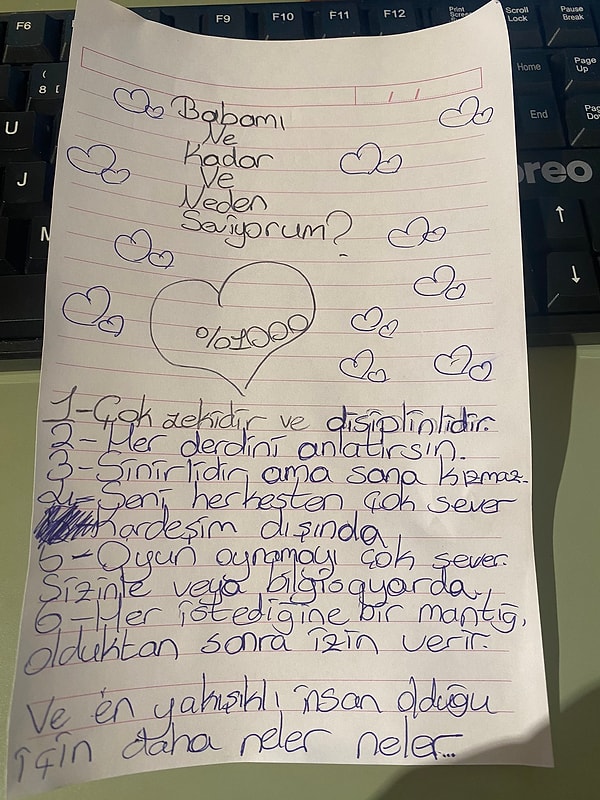 F6
F9
F10
F11
F12
Print
Scroll
Lock
Pause
Break
Home
Page
Up
End
8
U
J
M
oreo
Babamı
Ne
Kadar
Ve
Neden
Seviyorum?
%1000
1-Çok zekidir ve disiplinlidir.
2-Her derdini anlatırsın.
3-Sinirlidir ama sana kızmaz.
4-Seni herkesten çok sever
Kardeşim dışında
5-Oyun oynamayı çok sever.
Sizinle veya bilgisayarda.
6-Her istediğine bir mantığı
olduktan sonra izin verir.
Ve en yakışıklı insan olduğu
için daha neler neler...